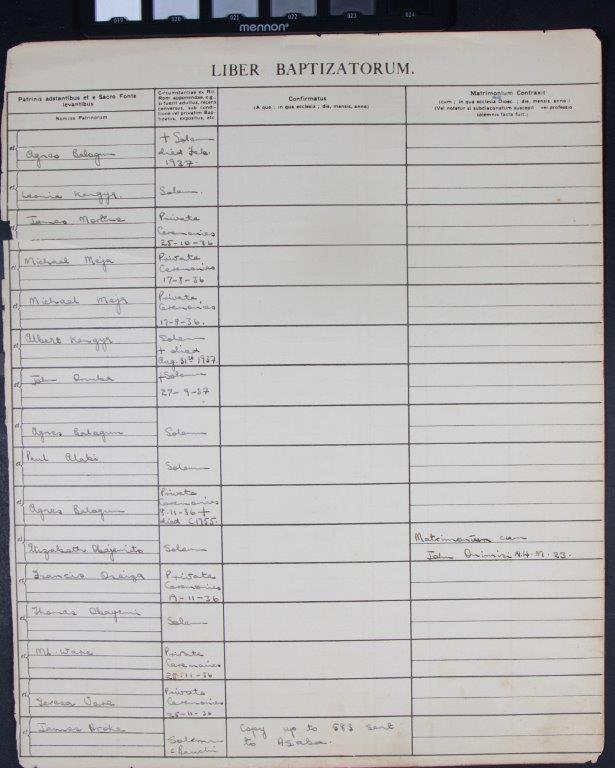 019 020 021 022 023 024
mennon
LIBER BAPTIZATORUM.
Patrinis adstantibus et e Sacro Fonte
levantibus
Nomina Patrinorum
Circumstantiae ex Rit.
Rom. apponendae, e.g.,
si fuerit adultus, recens
conversus, sub condi-
tione vel privatim Bap-
tizatus, expositus, etc.
Confirmatus
(A quo ; in qua ecclesia ; die, mensis, anno)
Matrimonium Contraxit
(cum ; in qua ecclesia Dioec. ; die, mensis, anno.)
(Vel notatur si subdiaconatum suscepit vel professio
solemnis facta fuit.)
et Agnes Balogun
+ Solem
died Feb.
1937.
et Leonia Kengys.
Solem.
et James Martins
Private
Ceremonies
25-10-36
et Michael Meja
Private
Ceremonies
17-8-36
et Michael Meja
Private
Ceremonies
17-8-36.
et Albert Kengys
Solem
+ died
Aug. 31st 1937.
et John
+Solem
27-9-37
et Agnes Balogun
Solem
et Paul Alabi
Solem
et Agnes Balogun
Private
Ceremonies
8-11-36 +
died c1955.
et Elizabeth
Solem
Matrimonium cum
John N.H.M. 23.
et Francis
Private
Ceremonies
19-11-36
et Thomas Obayemi
Solem
et Md. Ware
Private
Ceremonies
25-11-36
et Teresa Vare
Private
Ceremonies
25-11-36
et James
Solem
c Bauchi
Copy up to 683 sent
to Asaba.